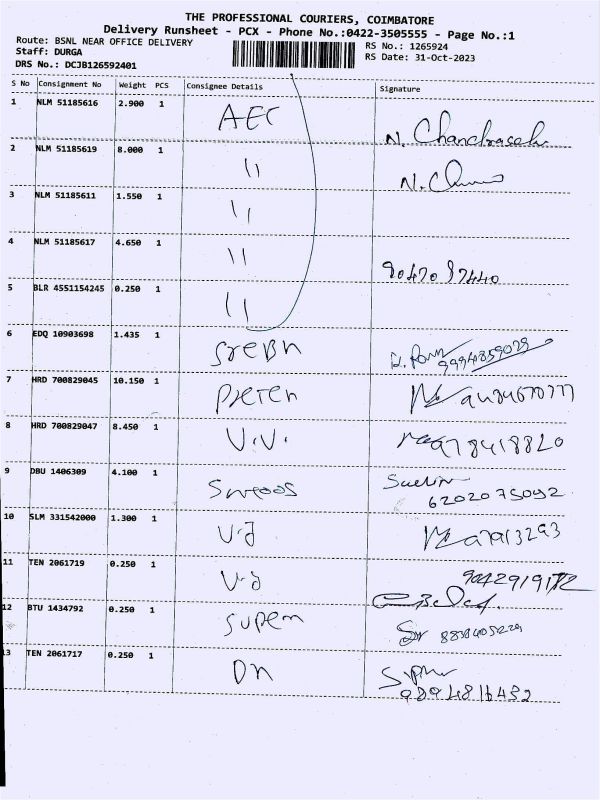 THE PROFESSIONAL COURIERS, COIMBATORE
Delivery Runsheet - PCX - Phone No.:0422-3505555 - Page No.:1
Route: BSNL NEAR OFFICE DELIVERY RS No.: 1265924
Staff: DURGA RS Date: 31-Oct-2023
DRS No.: DCJB126592401
S No Consignment No Weight PCS Consignee Details Signature
1 NLM 51185616 2.900 1 AEC N. Chandrasek
2 NLM 51185619 8.000 1 11
3 NLM 51185611 1.550 1 11
4 NLM 51185617 4.650 1 11 9047087440
5 BLR 4551154245 0.250 1 11
6 EDQ 10903698 1.435 1 9994859029
7 HRD 700829045 10.150 1
8 HRD 700829047 8.450 1 V.V. 978418820
9 DBU 1406309 4.100 1 6202075092
10 SLM 331542000 1.300 1 V-J
11 TEN 2061719 0.250 1 V-J
12 BTU 1434792 0.250 1 Supem
13 TEN 2061717 0.250 1 DN 9894816432